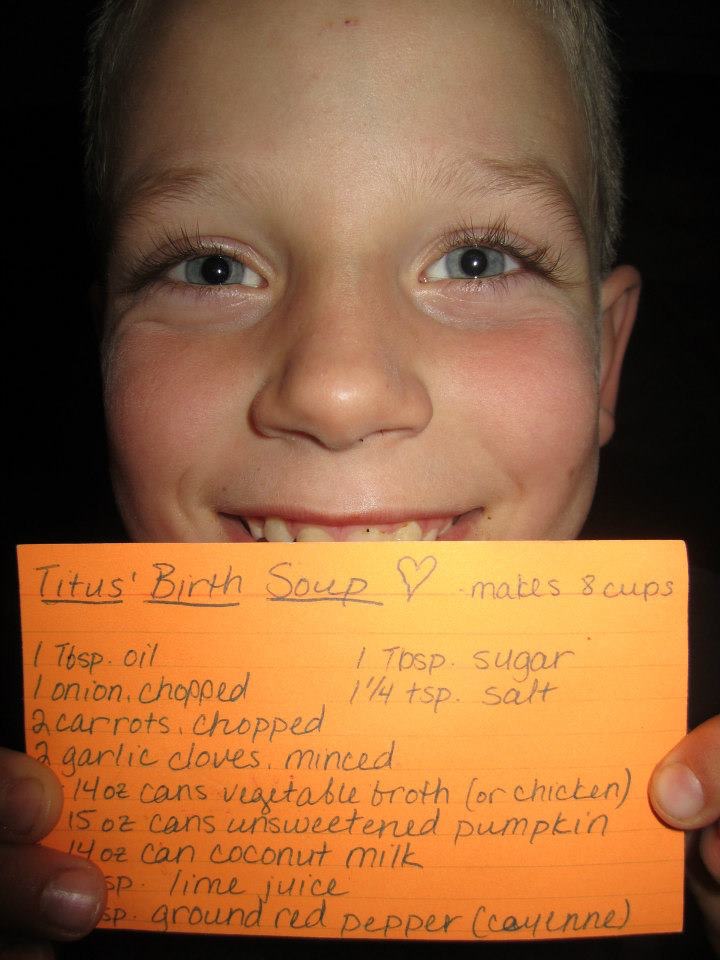 Titus' Birth Soup ♡ makes 8 cups
1 Tbsp. oil 1 Tbsp. sugar
1 onion, chopped 1 1/4 tsp. salt
2 carrots, chopped
2 garlic cloves, minced
14 oz cans vegetable broth (or chicken)
15 oz cans unsweetened pumpkin
14 oz can coconut milk
sp. lime juice
sp. ground red pepper (cayenne)